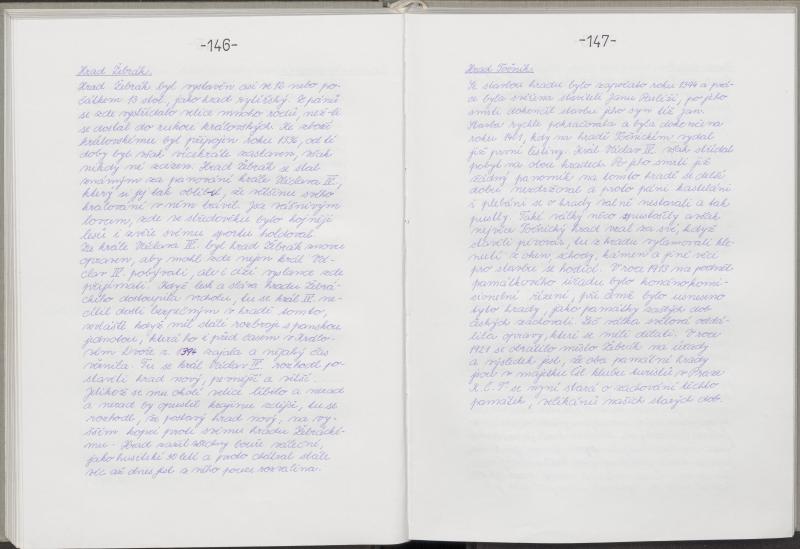 -146-
Hrad Žebrák.
Hrad Žebrák byl vystavěn asi ve 12 nebo po-
čátkem 13 stol., jako hrad rytířský. Z pánů
se zde vystřídalo velice mnoho rodů, než-li
se dostal do rukou královských. Ke zboží
královskému byl připojen roku 1336, od té
doby byl však vícekráte zastaven, však
nikdy ne zcizen. Hrad Žebrák se stal
známým za panování krále Václava IV.,
který si jej tak oblíbil, že většinu svého
kralování v něm trávil. Jsa vášnivým
lovcem, zde ve středověku bylo hojněji
lesů i zvěře svému sportu holdoval.
Za krále Václava IV. byl hrad Žebrák znovu
opraven, aby mohl zde nejen král Vá-
clav IV. pobývati, ale i cizí vyslance zde
přijímati. Když lesk a sláva hradu Žebrá-
ckého dostoupila vrcholu, tu se král IV. ne-
cítil dosti bezpečným v hradě tomto,
zvláště když měl stále rozbroje s panskou
jednotou, která ho i před časem v Králo-
vém Dvoře r. 1394 zajala a nějaký čas
věznila. Tu se král Václav IV. rozhodl po-
staviti hrad nový, pevnější a větší.
Jelikož se mu okolí velice líbilo a nerad
a nerad by opustil krajinu zdější, tu se
rozhodl, že postaví hrad nový, na vy-
šším kopci proti svému hradu Žebrácké-
mu. Hrad zažil všechny bouře válečné,
jako husitské 30 leté a proto chátral stále
víc až dnes jest z něho pouze rozvalina.
-147-
Hrad Točník.
Se stavbou hradu bylo započato roku 1394 a prá-
ce byla svěřena staviteli Janu Parléři, po jeho
smrti dokončil stavbu jeho syn též Jan.
Stavba rychle pokračovala a byla dokončena
roku 1401, kdy na hradě Točnickém vydal
již první listiny. Král Václav IV. však střídal
pobyt na obou hradech. Po jeho smrti již
žádný panovník na tomto hradě se delší
dobu nezdržoval a proto páni kasteláni
i plebáni se o hrady valně nestarali a tak
pustly. Také války něco zpustošily avšak
nejvíce Točnický hrad vzal za své, když
stavěli pivovar, tu z hradu vylamovali kle-
nutí z oken schody, kámen a jiné věci
pro stavbu se hodící. V roce 1913 na podnět
památkového úřadu bylo konáno komi-
sionelní řízení, při čemž bylo usneseno
tyto hrady, jako památky zašlých dob
českých zachovati. Leč válka světová oddá-
lila opravy, které se měli dělati. V roce
1921 se obrátilo město Žebrák na úřady
a výsledek jest, že oba památné hrady
jsou v majetku čsl klubu turistů v Praze
K. Č. T. se nyní stará o zachování těchto
památek, velikánů našich starých dob.